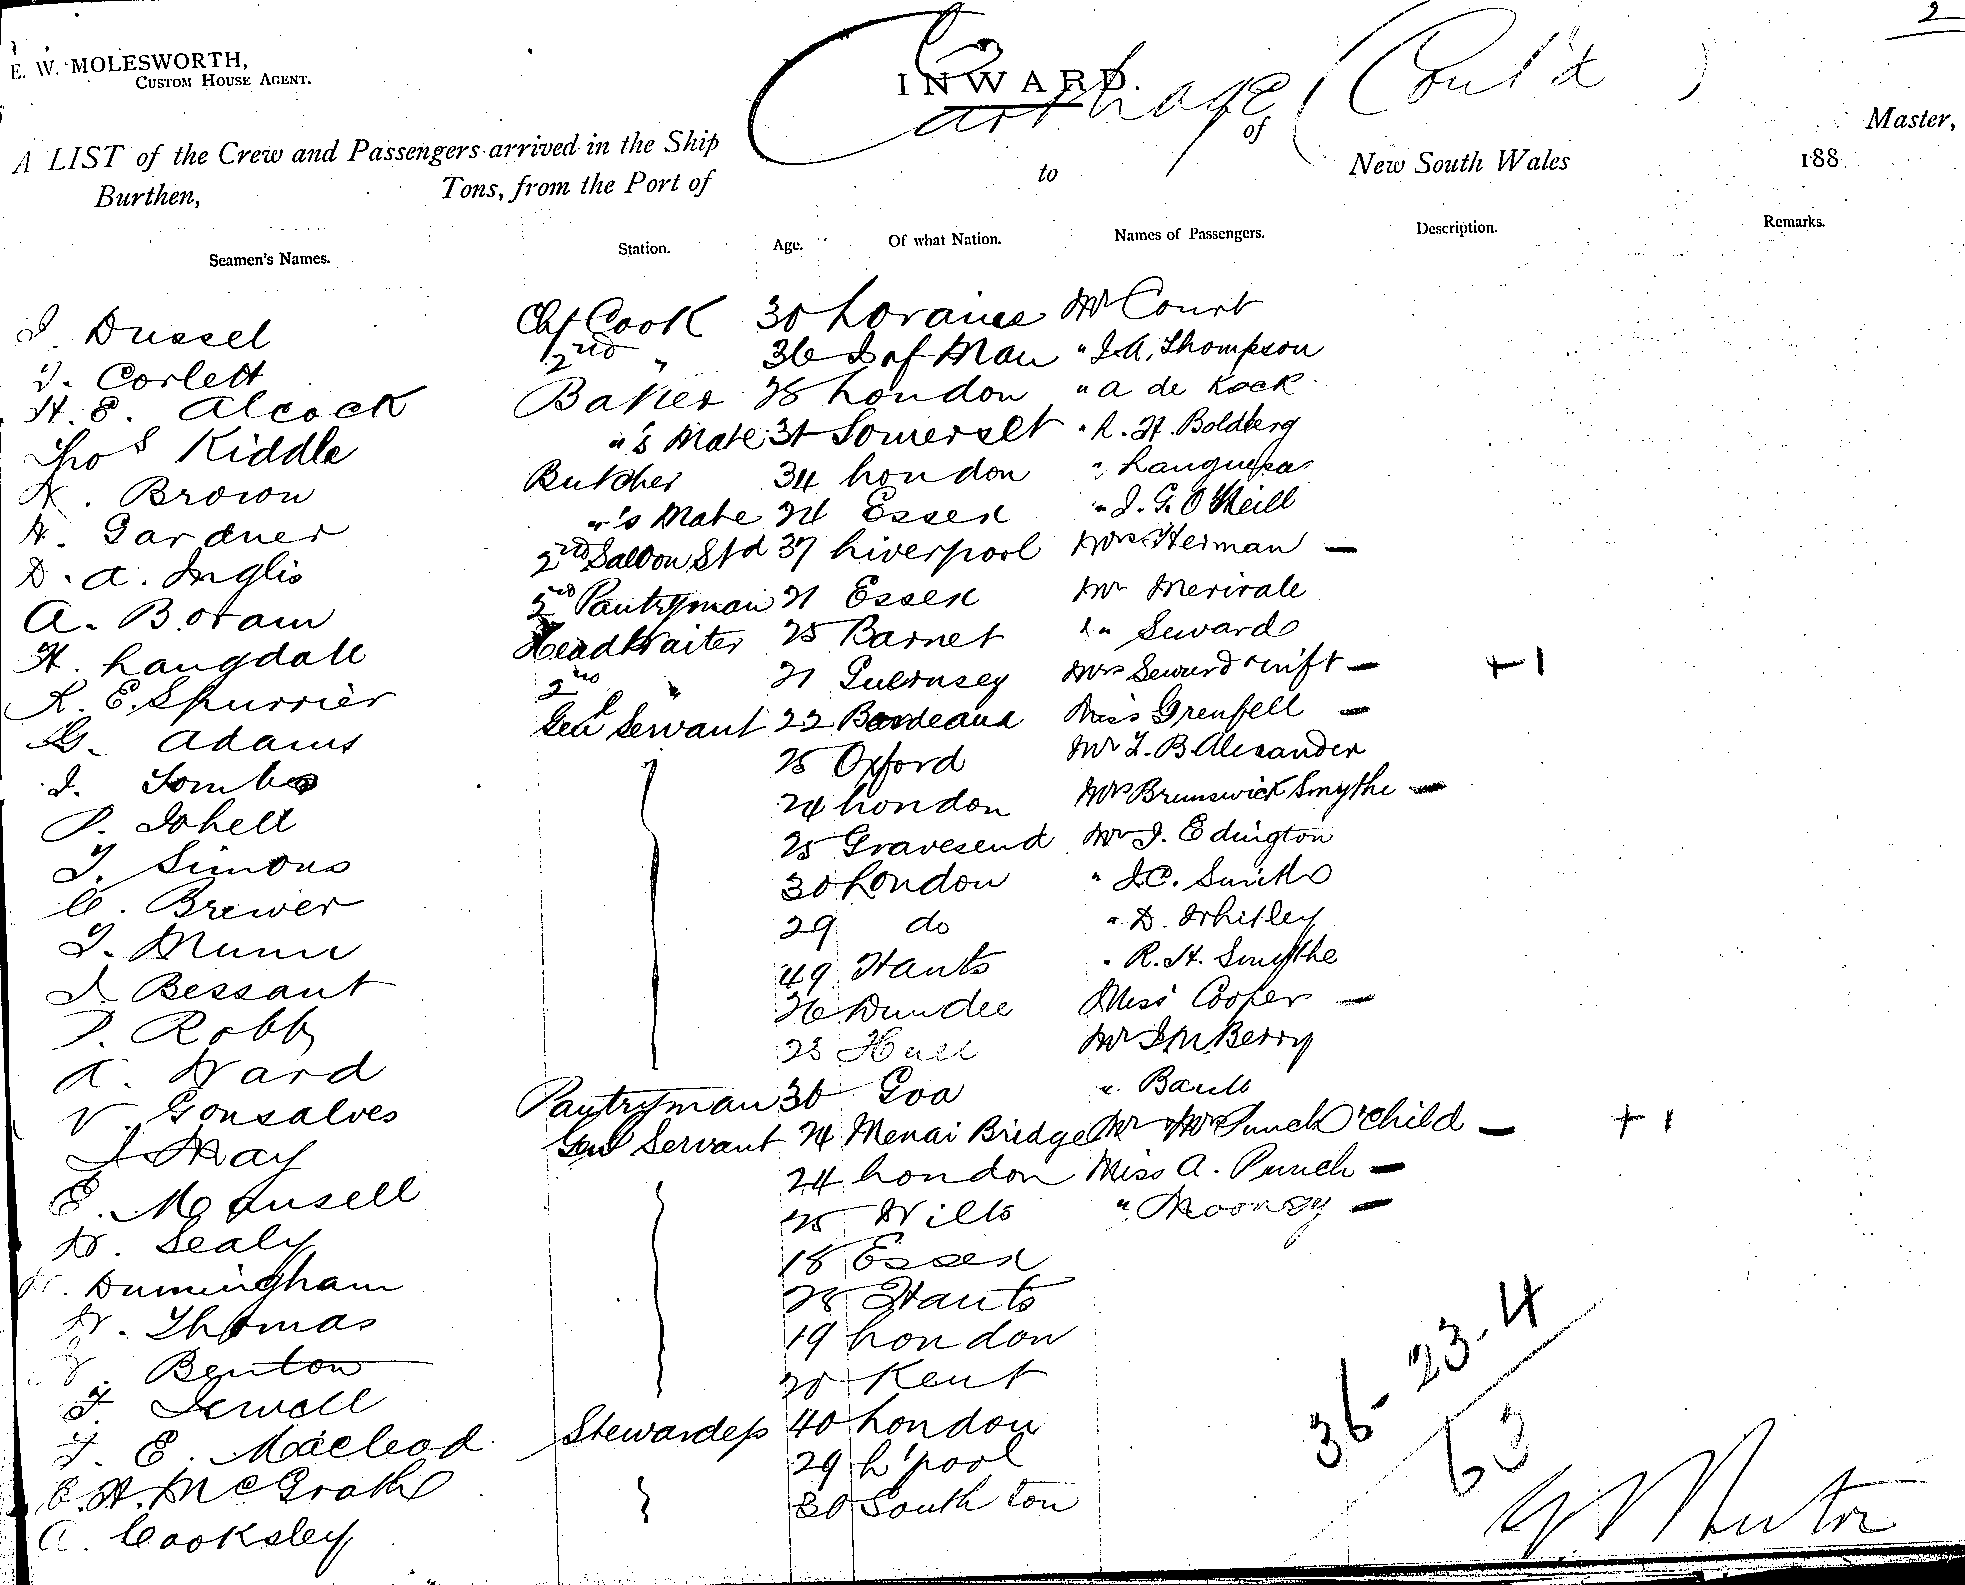 2
E. W. MOLESWORTH,
CUSTOM HOUSE AGENT.
INWARD.
Carthage (Cont'd)
A LIST of the Crew and Passengers arrived in the Ship of Master,
Burthen, Tons, from the Port of to New South Wales 188
Seamen's Names. Station. Age. Of what Nation. Names of Passengers. Description. Remarks.
J. Dussel Chf Cook 30 Loraine Mr Court
J. Corlett 2nd " 36 I of Man " J. A. Thompson
H. E. Alcock Baker 28 London " A de Kock
Thos Kiddle "'s Mate 31 Somerset " R. H. Boldberg
W. Brown Butcher 34 London "
W. Gardner "'s Mate 24 Essex " J. G. O'Neill
D. A. Inglis 2nd Saloon Std 37 Liverpool Mrs Herman —
A. Boram 2nd Pantryman 21 Essex Mr Merivale
H. Langdale Head Waiter 25 Barnet " Seward
R. E. Spurrier 2nd " 21 Guernsey Mrs Seward & inft — + 1
G. Adams Genl Servant 22 Bordeaux Miss Grenfell —
J. Tombs 25 Oxford Mr L. B. Alexander
P. Isbell 24 London Mrs Brunswick Smythe —
T. Simons 25 Gravesend Mr J. Edington
C. Brewer 30 London " J. C. Smith
T. Munn 29 do " D. Whitley
J. Bessant 49 Hants " R. H. Smythe
P. Robb 26 Dundee Miss Cooper —
A. Ward 23 Hull Mr J. M. Berry
V. Gonsalves Pantryman 36 Goa " Banks
J. May Genl Servant 24 Menai Bridge Mr & Mrs Punch & child — + 1
E. Mansell 24 London Miss A. Punch —
W. Sealy 25 Wilts " Mooney —
W. Dunningham 18 Essex
W. Thomas 28 Hants
J. Benton 19 London
F. Sewell 20 Kent
F. E. Macleod Stewardess 40 London
E. H. McGrath 29 L'pool
A. Cooksley 30 South'ton
36 - 23 - 4
63